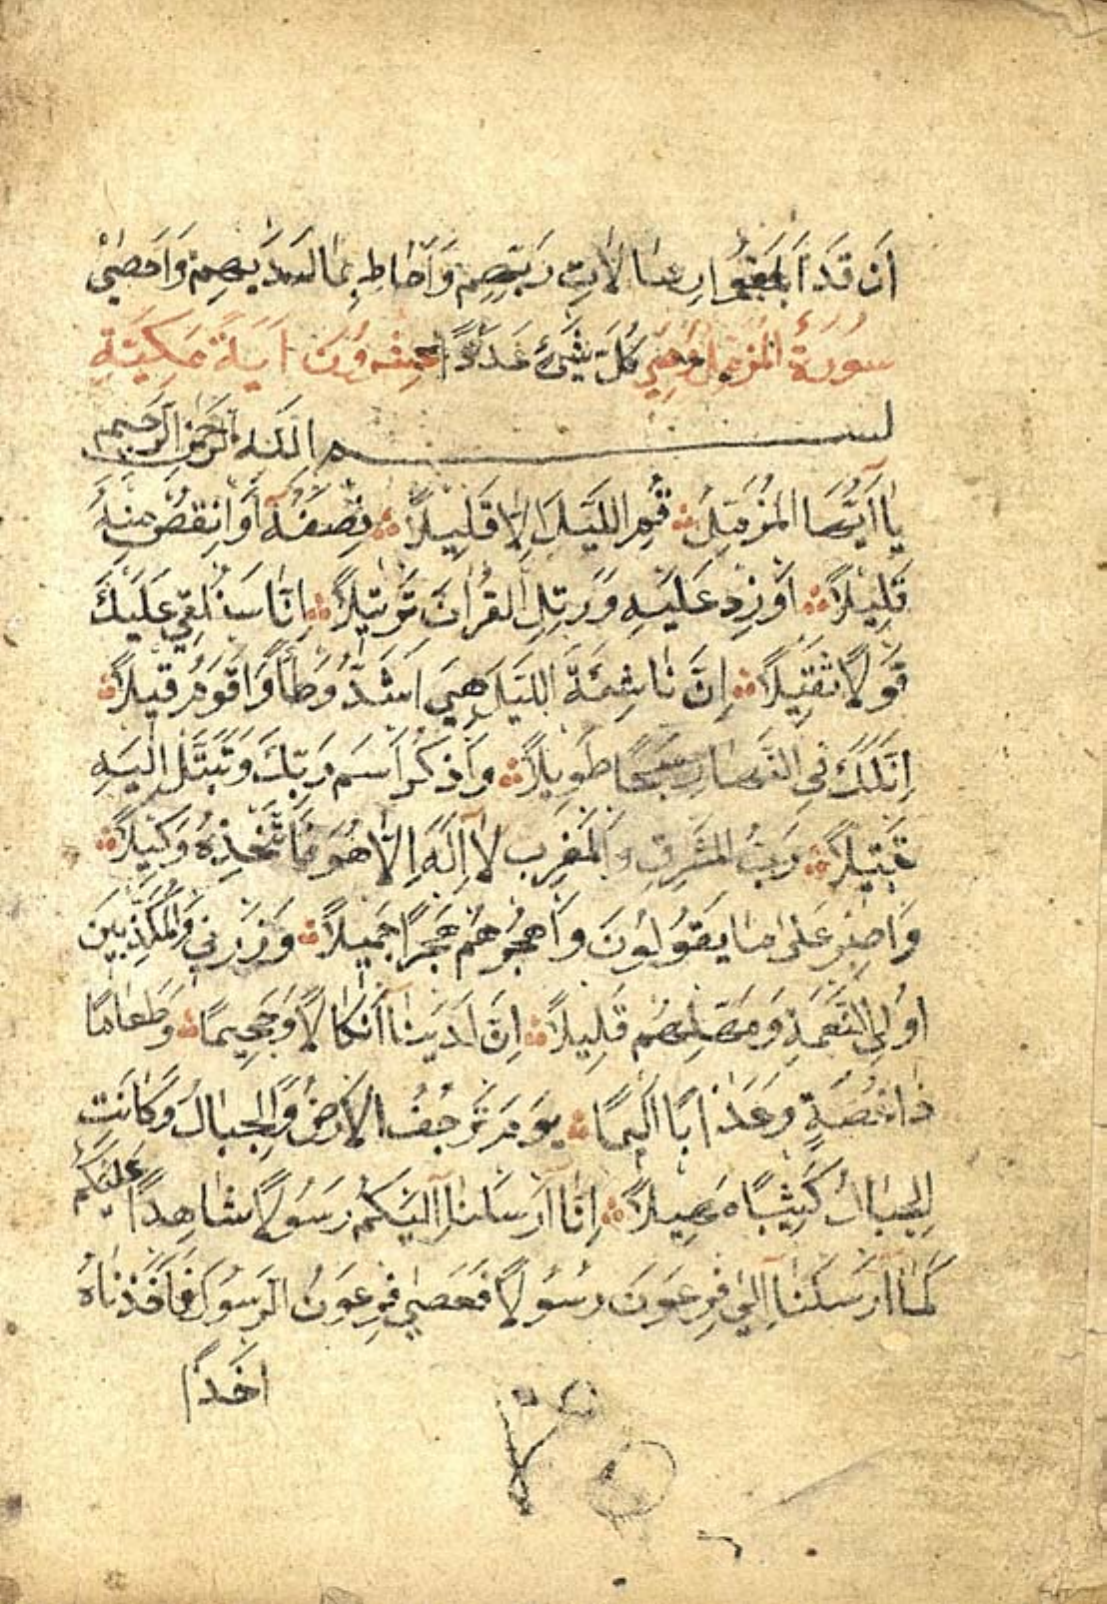 اَنْ قَدْ اَبْلَغُوا رِسَالَاتِ رَبِّهِمْ وَاَحَاطَ بِمَا لَدَيْهِمْ وَاَحْصٰى
سُورَةُ الْمُزَّمِّل وَهِيَ كُلَّ شَيْءٍ عَدَدًا عِشْرُونَ اٰيَةً مَكِّيَّةٍ
بسم الله الرحمن الرحيم
يَا اَيُّهَا الْمُزَّمِّلُ قُمِ اللَّيْلَ اِلَّا قَلِيلًا نِصْفَهُ اَوِ انْقُصْ مِنْهُ
قَلِيلًا اَوْ زِدْ عَلَيْهِ وَرَتِّلِ الْقُرْاٰنَ تَرْتِيلًا اِنَّا سَنُلْقِي عَلَيْكَ
قَوْلًا ثَقِيلًا اِنَّ نَاشِئَةَ اللَّيْلِ هِيَ اَشَدُّ وَطْأً وَاَقْوَمُ قِيلًا
اِنَّ لَكَ فِي النَّهَارِ سَبْحًا طَوِيلًا وَاذْكُرِ اسْمَ رَبِّكَ وَتَبَتَّلْ اِلَيْهِ
تَبْتِيلًا رَبُّ الْمَشْرِقِ وَالْمَغْرِبِ لَا اِلٰهَ اِلَّا هُوَ فَاتَّخِذْهُ وَكِيلًا
وَاصْبِرْ عَلٰى مَا يَقُولُونَ وَاهْجُرْهُمْ هَجْرًا جَمِيلًا وَذَرْنِي وَالْمُكَذِّبِينَ
اُولِي النَّعْمَةِ وَمَهِّلْهُمْ قَلِيلًا اِنَّ لَدَيْنَا اَنْكَالًا وَجَحِيمًا وَطَعَامًا
ذَا غُصَّةٍ وَعَذَابًا اَلِيمًا يَوْمَ تَرْجُفُ الْاَرْضُ وَالْجِبَالُ وَكَانَتِ
الْجِبَالُ كَثِيبًا مَهِيلًا اِنَّا اَرْسَلْنَا اِلَيْكُمْ رَسُولًا شَاهِدًا عَلَيْكُمْ
كَمَا اَرْسَلْنَا اِلٰى فِرْعَوْنَ رَسُولًا فَعَصٰى فِرْعَوْنُ الرَّسُولَ فَاَخَذْنَاهُ
اَخْذًا